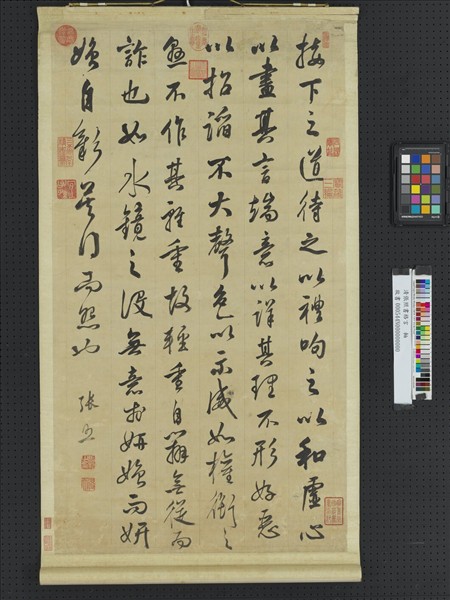 接下之道待之以禮呴之以和虛心
以盡其言端意以詳其理不形好惡
以招諂不大聲色以示威如權衡之
懸不作其輕重故輕重自辨無從而
詐也如水鏡之設無意於妍媸而妍
媸自彰莫得而怨也
張照